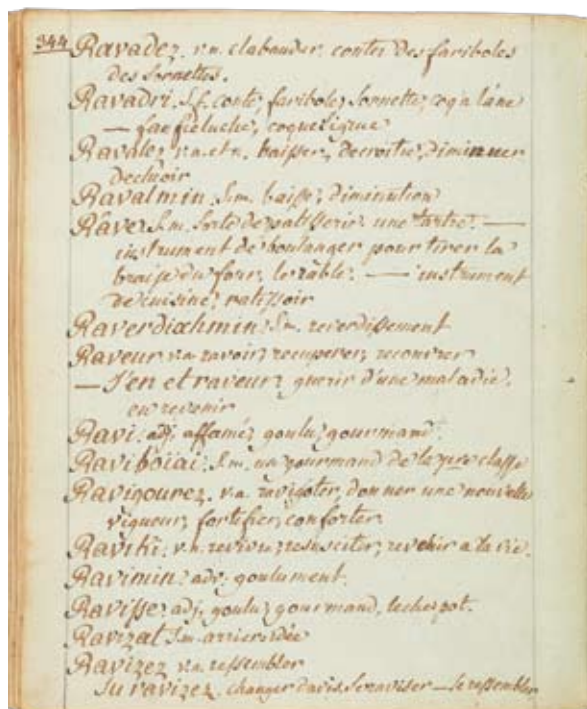 344 Ravadez. v.n. clabauder. conter des fariboles
des sornettes.
Ravadri. s.f. conte, faribole, sornette, coq a l'ane
— fanfieluche, coquesigrue
Ravalez v.a. et n. baisser, decroitre, diminuer
dechoir
Ravalmin. s.m. baisse, diminution
Râve. s.m. sorte de patisserie. une tartre. —
instrument de boulanger pour tirer la
braise du four, le râble. — instrument
de cuisine, ratissoir
Raverdixhmin. s.m. reverdissement
Raveur v.a. ravoir, recuperer, recouvrer
— S'en et raveur, guerir d'une maladie.
en revenir
Ravi. adj. affamé, goulu, gourmand.
Raviboiai. s.m. un gourmand de la pre classe
Ravigourez. v.a. ravigoter, donner une nouvelle
vigueur, fortifier, conforter
Raviki. v.n. revivre, resusciter, revenir a la vie.
Ravimin. adv. goulument.
Ravisse. adj. goulu, gourmand, leche pot.
Ravizat s.m. arriere idée
Ravizez v.a. ressembler
Su ravizez. changer d'avis. se raviser — se ressembler